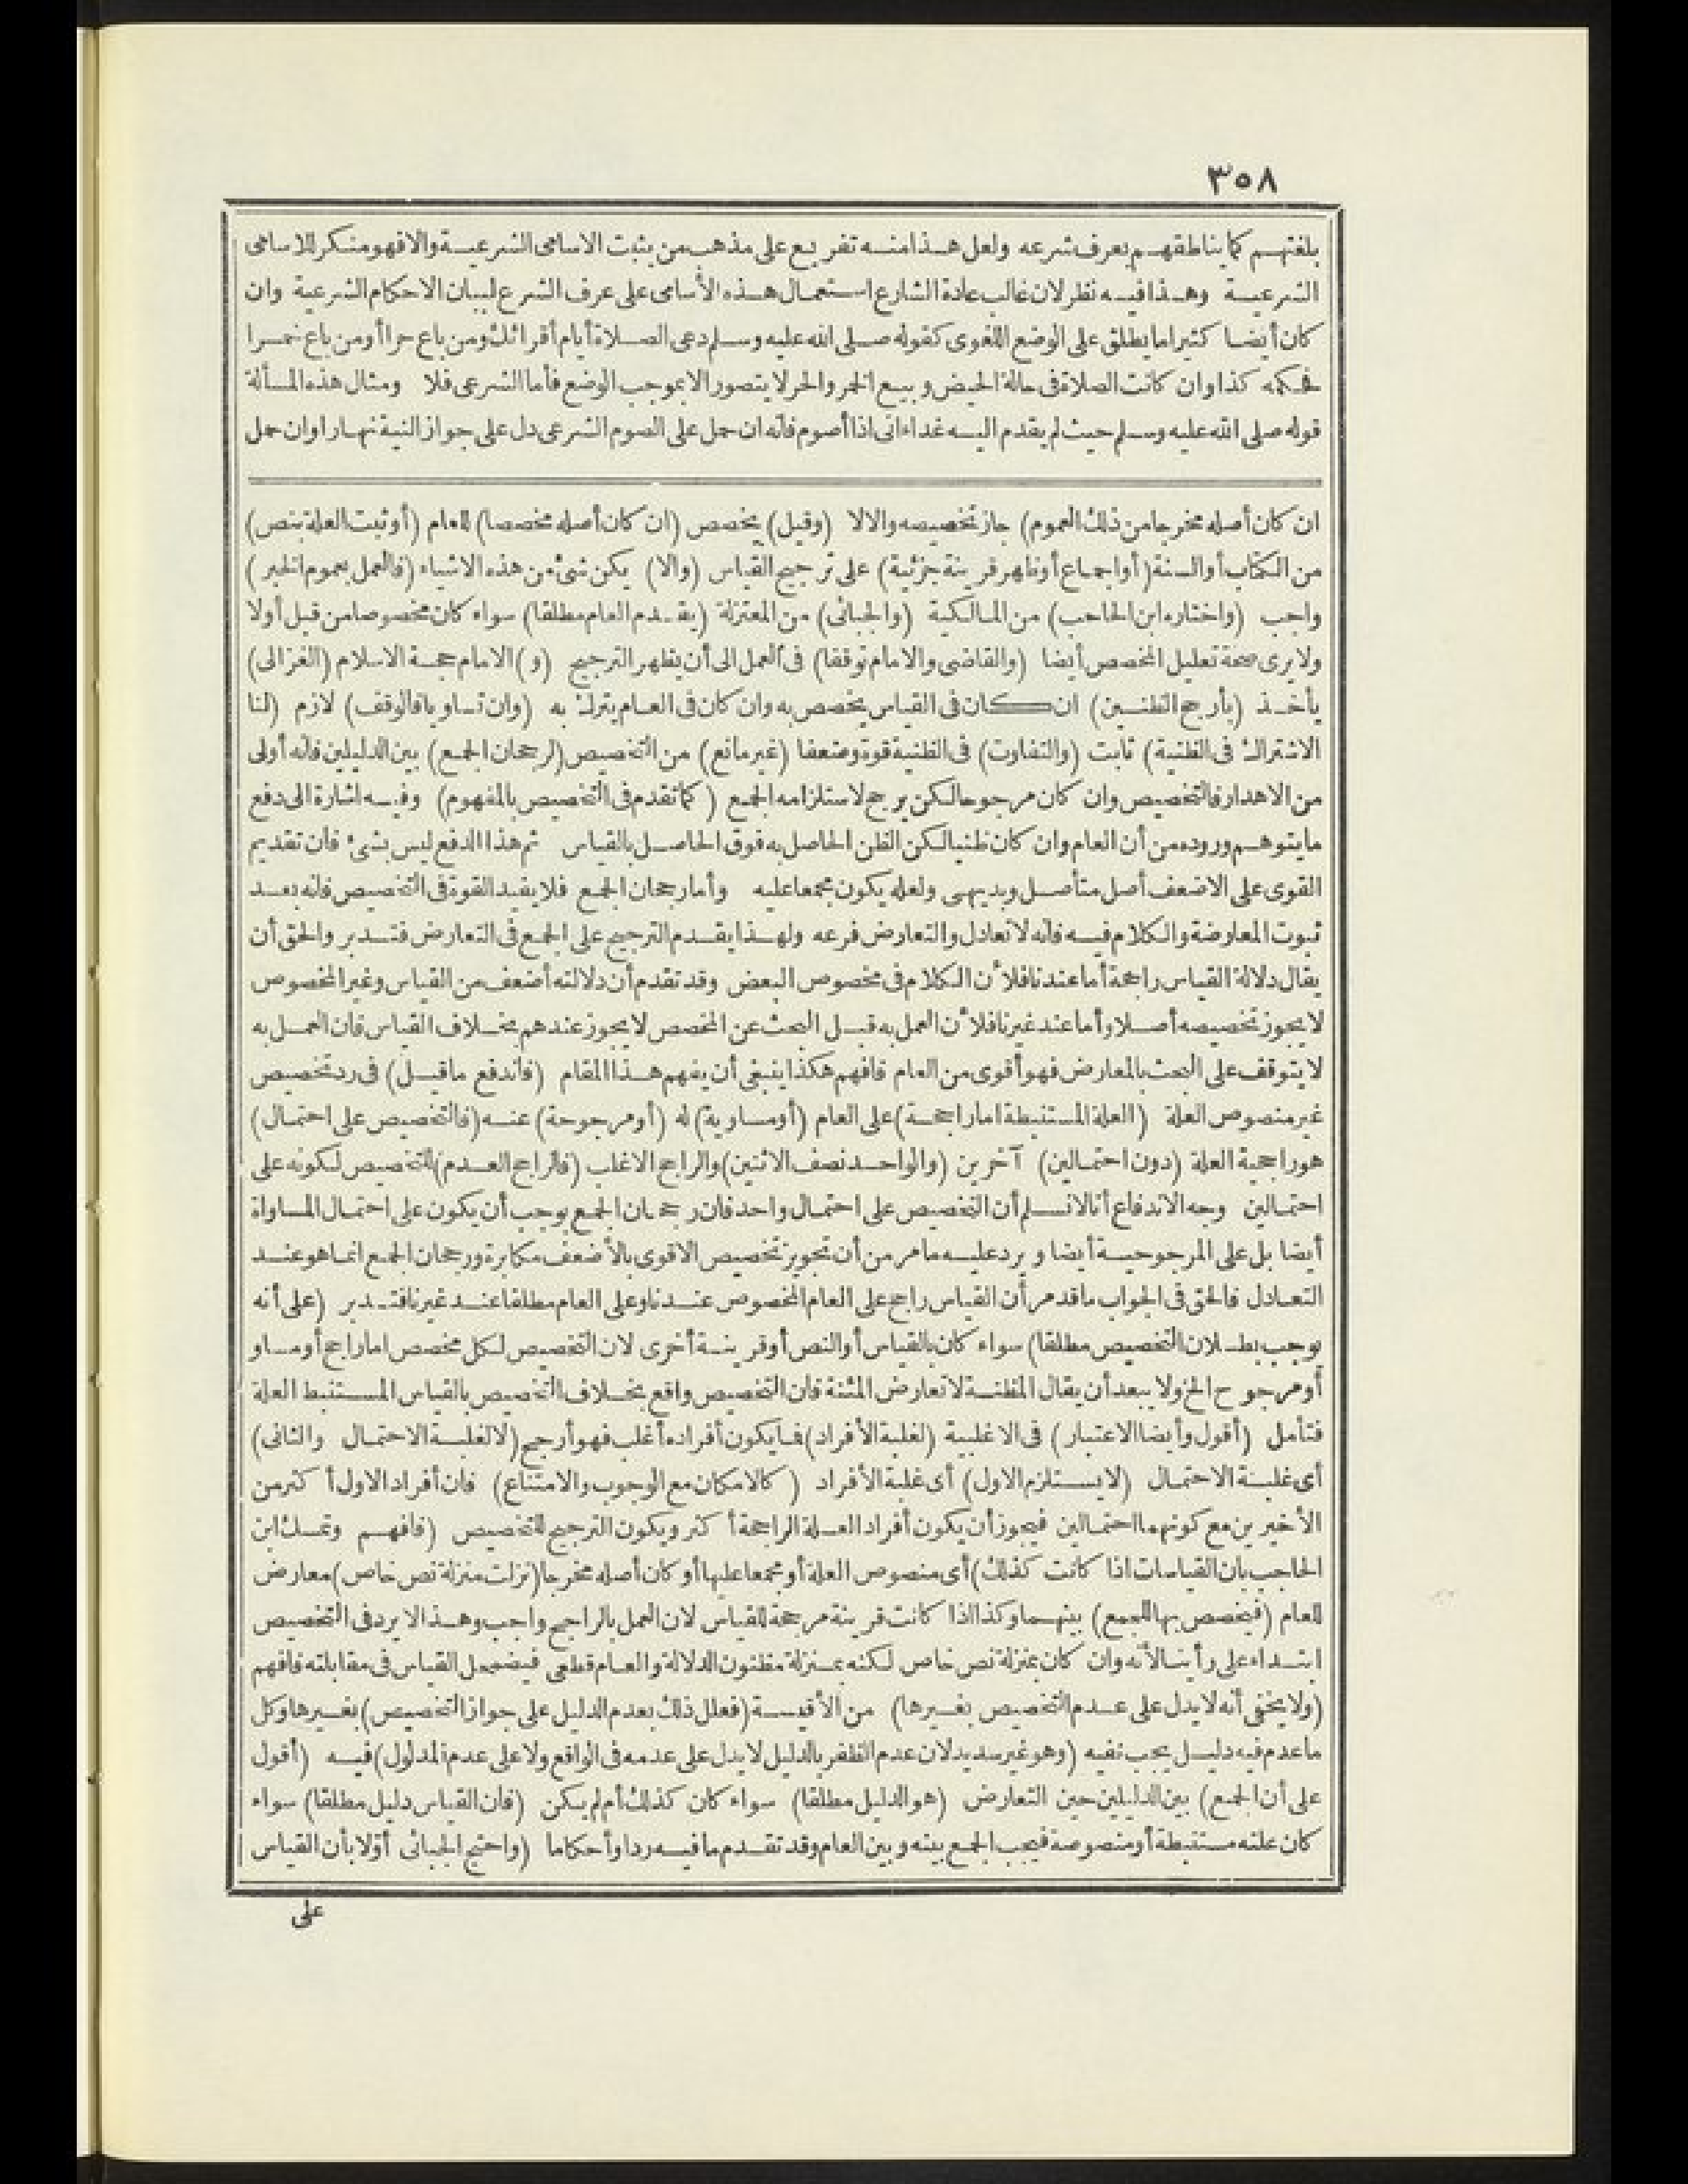 ٣٥٨
بلغتهم كما يناطقهم بعرف شرعه ولعل هذا منه تفريع على مذهب من يثبت الاسامى الشرعية والا فهو منكر للاسامى
الشرعية وهذا فيه نظر لان غالب عادة الشارع استعمال هذه الأسامى على عرف الشرع لبيان الاحكام الشرعية وان
كان أيضا كثيرا ما يطلق على الوضع اللغوى كقوله صلى الله عليه وسلم دعى الصلاة أيام أقرائك ومن باع حرا أو من باع خمرا
فحكمه كذا وان كانت الصلاة فى حالة الحيض وبيع الخمر والحر لا يتصور الا بموجب الوضع فأما الشرعى فلا ومثال هذه المسألة
قوله صلى الله عليه وسلم حيث لم يقدم اليه غداء انى اذا أصوم فانه ان حمل على الصوم الشرعى دل على جواز النية نهارا وان حمل
ان كان أصله مخرجا من ذلك العموم) جاز تخصيصه والا لا (وقيل) يخصص (ان كان أصله مخصصا) للعام (أو ثبت العلة بنص)
من الكتاب أو السنة (أو اجماع أو ظهر قرينة جزئية) على ترجيح القياس (والا) يكن شئ من هذه الاشياء (فالعمل بعموم الخبر)
واجب (واختاره ابن الحاجب) من المالكية (والجبائى) من المعتزلة (يقدم العام مطلقا) سواء كان مخصوصا من قبل أولا
ولا يرى صحة تعليل المخصص أيضا (والقاضى والامام توقفا) فى العمل الى أن يظهر الترجيح (و) الامام حجة الاسلام (الغزالى)
يأخذ (بأرجح الظنين) ان كان فى القياس يخصص به وان كان فى العام يترك به (وان تساويا فالوقف) لازم (لنا
الاشتراك فى الظنية) ثابت (والتفاوت) فى الظنية قوة وضعفا (غير مانع) من التخصيص (لرجحان الجمع) بين الدليلين فانه أولى
من الاهدار فالتخصيص وان كان مرجوحا لكن يرجح لاستلزامه الجمع (كما تقدم فى التخصيص بالمفهوم) وفيه اشارة الى دفع
ما يتوهم وروده من أن العام وان كان ظنيا لكن الظن الحاصل به فوق الحاصل بالقياس ثم هذا الدفع ليس بشئ فان تقديم
القوى على الاضعف أصل متأصل وبديهى ولعله يكون مجمعا عليه وأما رجحان الجمع فلا يفيد القوة فى التخصيص فانه بعد
ثبوت المعارضة والكلام فيه فانه لا تعادل والتعارض فرعه ولهذا يقدم الترجيح على الجمع فى التعارض فتدبر والحق أن
يقال دلالة القياس راجحة أما عندنا فلأن الكلام فى مخصوص البعض وقد تقدم أن دلالته أضعف من القياس وغير المخصوص
لا يجوز تخصيصه أصلا وأما عند غيرنا فلأن العمل به قبل البحث عن المخصص لا يجوز عندهم بخلاف القياس فان العمل به
لا يتوقف على البحث بالمعارض فهو أقوى من العام فافهم هكذا ينبغى أن يفهم هذا المقام (فاندفع ما قيل) فى رد تخصيص
غير منصوص العلة (العلة المستنبطة اما راجحة) على العام (أو مساوية) له (أو مرجوحة) عنه (فالتخصيص على احتمال)
هو راجحية العلة (دون احتمالين) آخرين (والواحد نصف الاثنين) والراجح الاغلب (فالراجح العدم) للتخصيص لكونه على
احتمالين وجه الاندفاع أنا لا نسلم أن التخصيص على احتمال واحد فان رجحان الجمع يوجب أن يكون على احتمال المساواة
أيضا بل على المرجوحية أيضا ويرد عليه ما مر من أن تجويز تخصيص الاقوى بالأضعف مكابرة ورجحان الجمع انما هو عند
التعادل فالحق فى الجواب ما قد مر أن القياس راجح على العام المخصوص عندنا وعلى العام مطلقا عند غيرنا فتدبر (على أنه
يوجب بطلان التخصيص مطلقا) سواء كان بالقياس أو النص أو قرينة أخرى لان التخصيص لكل مخصص اما راجح أو مساو
أو مرجوح الخ ولا يبعد أن يقال المظنة لا تعارض المئنة فان التخصيص واقع بخلاف التخصيص بالقياس المستنبط العلة
فتأمل (أقول وأيضا الاعتبار) فى الاغلبية (لغلبة الأفراد) فما يكون أفراده أغلب فهو أرجح (لا لغلبة الاحتمال والثانى)
أى غلبة الاحتمال (لا يستلزم الاول) أى غلبة الأفراد (كالامكان مع الوجوب والامتناع) فان أفراد الاول أكثر من
الأخيرين مع كونهما احتمالين فيجوز أن يكون أفراد العلة الراجحة أكثر ويكون الترجيح للتخصيص (فافهم وتمسك ابن
الحاجب بان القياسات اذا كانت كذلك) أى منصوص العلة أو مجمعا عليها أو كان أصله مخرجا (نزلت منزلة نص خاص) معارض
للعام (فيخصص بها للجمع) بينهما وكذا اذا كانت قرينة مرجحة للقياس لان العمل بالراجح واجب وهذا لا يرد فى التخصيص
ابتداء على رأينا لأنه وان كان بمنزلة نص خاص لكنه بمنزلة مظنون الدلالة والعام قطعى فيضمحل القياس فى مقابلته فافهم
(ولا يخفى أنه لا يدل على عدم التخصيص بغيرها) من الأقيسة (فعلل ذلك بعدم الدليل على جواز التخصيص) بغيرها وكل
ما عدم فيه دليل يجب نفيه (وهو غير سديد لان عدم الظفر بالدليل لا يدل على عدمه فى الواقع ولا على عدم المدلول) فيه (أقول
على أن الجمع) بين الدليلين حين التعارض (هو الدليل مطلقا) سواء كان كذلك أم لم يكن (فان القياس دليل مطلقا) سواء
كان علته مستنبطة أو منصوصة فيجب الجمع بينه وبين العام وقد تقدم ما فيه ردا وأحكاما (واحتج الجبائى أولا بأن القياس
على